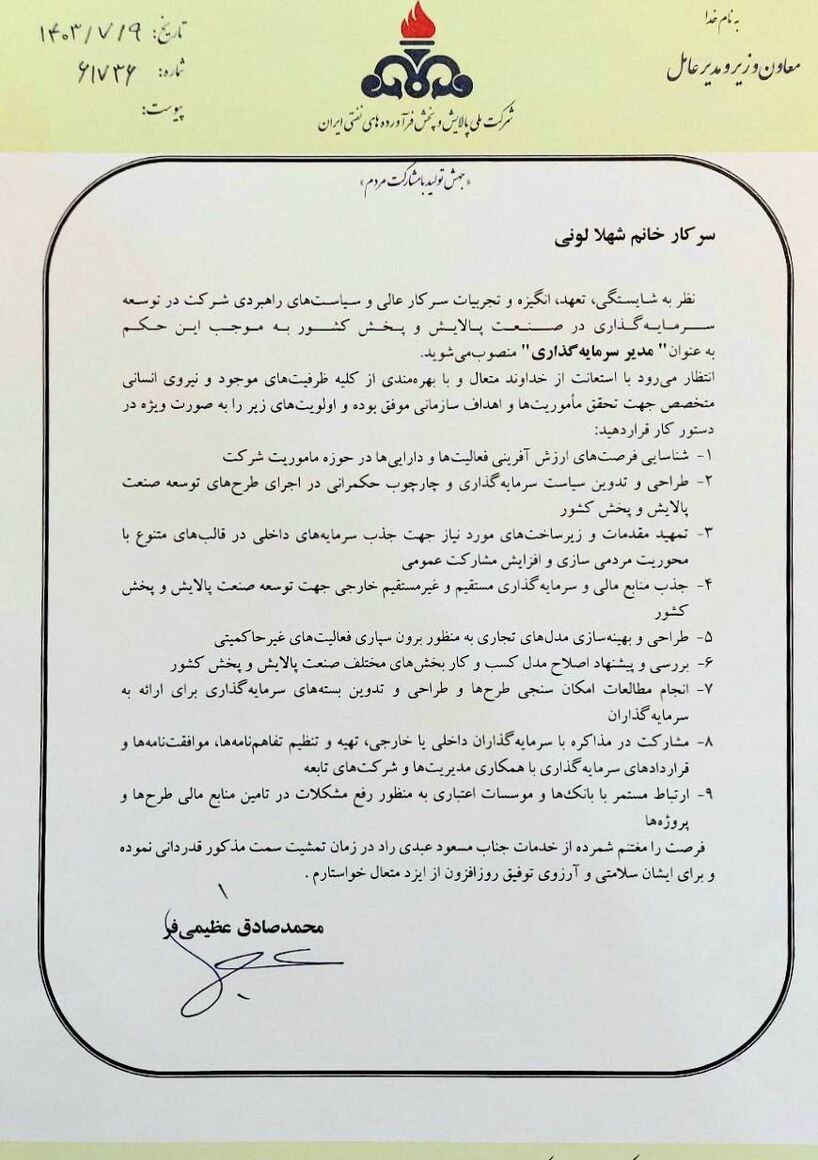 به نام خدا
معاون وزیر و مدیر عامل
شرکت ملی پالایش و پخش فرآورده های نفتی ایران
تاریخ: ۱۴۰۳/۷/۱۹
شماره: ۶۱۷۳۶
پیوست:
«جهش تولید با مشارکت مردم»
سرکار خانم شهلا لونی
نظر به شایستگی، تعهد، انگیزه و تجربیات سرکار عالی و سیاست‌های راهبردی شرکت در توسعه
سرمایه‌گذاری در صنعت پالایش و پخش کشور به موجب این حکم
به عنوان" مدیر سرمایه‌گذاری" منصوب می‌شوید.
انتظار می‌رود با استعانت از خداوند متعال و با بهره‌مندی از کلیه ظرفیت‌های موجود و نیروی انسانی
متخصص جهت تحقق مأموریت‌ها و اهداف سازمانی موفق بوده و اولویت‌های زیر را به صورت ویژه در
دستور کار قراردهید:
۱- شناسایی فرصت‌های ارزش آفرینی فعالیت‌ها و دارایی‌ها در حوزه ماموریت شرکت
۲- طراحی و تدوین سیاست سرمایه‌گذاری و چارچوب حکمرانی در اجرای طرح‌های توسعه صنعت
پالایش و پخش کشور
۳- تمهید مقدمات و زیرساخت‌های مورد نیاز جهت جذب سرمایه‌های داخلی در قالب‌های متنوع با
محوریت مردمی سازی و افزایش مشارکت عمومی
۴- جذب منابع مالی و سرمایه‌گذاری مستقیم و غیرمستقیم خارجی جهت توسعه صنعت پالایش و پخش
کشور
۵- طراحی و بهینه‌سازی مدل‌های تجاری به منظور برون سپاری فعالیت‌های غیرحاکمیتی
۶- بررسی و پیشنهاد اصلاح مدل کسب و کار بخش‌های مختلف صنعت پالایش و پخش کشور
۷- انجام مطالعات امکان سنجی طرح‌ها و طراحی و تدوین بسته‌های سرمایه‌گذاری برای ارائه به
سرمایه‌گذاران
۸- مشارکت در مذاکره با سرمایه‌گذاران داخلی یا خارجی، تهیه و تنظیم تفاهم‌نامه‌ها، موافقت‌نامه‌ها و
قراردادهای سرمایه‌گذاری با همکاری مدیریت‌ها و شرکت‌های تابعه
۹- ارتباط مستمر با بانک‌ها و موسسات اعتباری به منظور رفع مشکلات در تامین منابع مالی طرح‌ها و
پروژه‌ها
فرصت را مغتنم شمرده از خدمات جناب مسعود عبدی راد در زمان تمشیت سمت مذکور قدردانی نموده
و برای ایشان سلامتی و آرزوی توفیق روزافزون از ایزد متعال خواستارم .
محمدصادق عظیمی‌فر